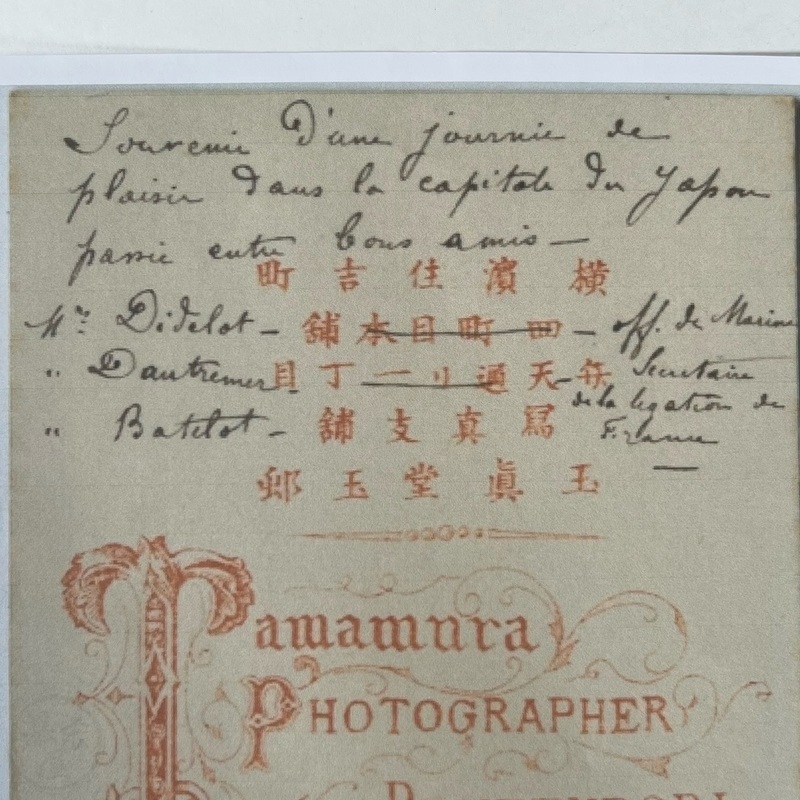 Souvenir d'une journée de
plaisir dans la capitale du Japon
passée entre bons amis —
横濱住吉町
Mr Didelot — off. de Marine
四町目本舗
" Dautremer — Secretaire
弁天通リ一丁目
de la legation de
" Batelot — France
寫真支舗
玉眞堂玉邨
Tamamura
PHOTOGRAPHER